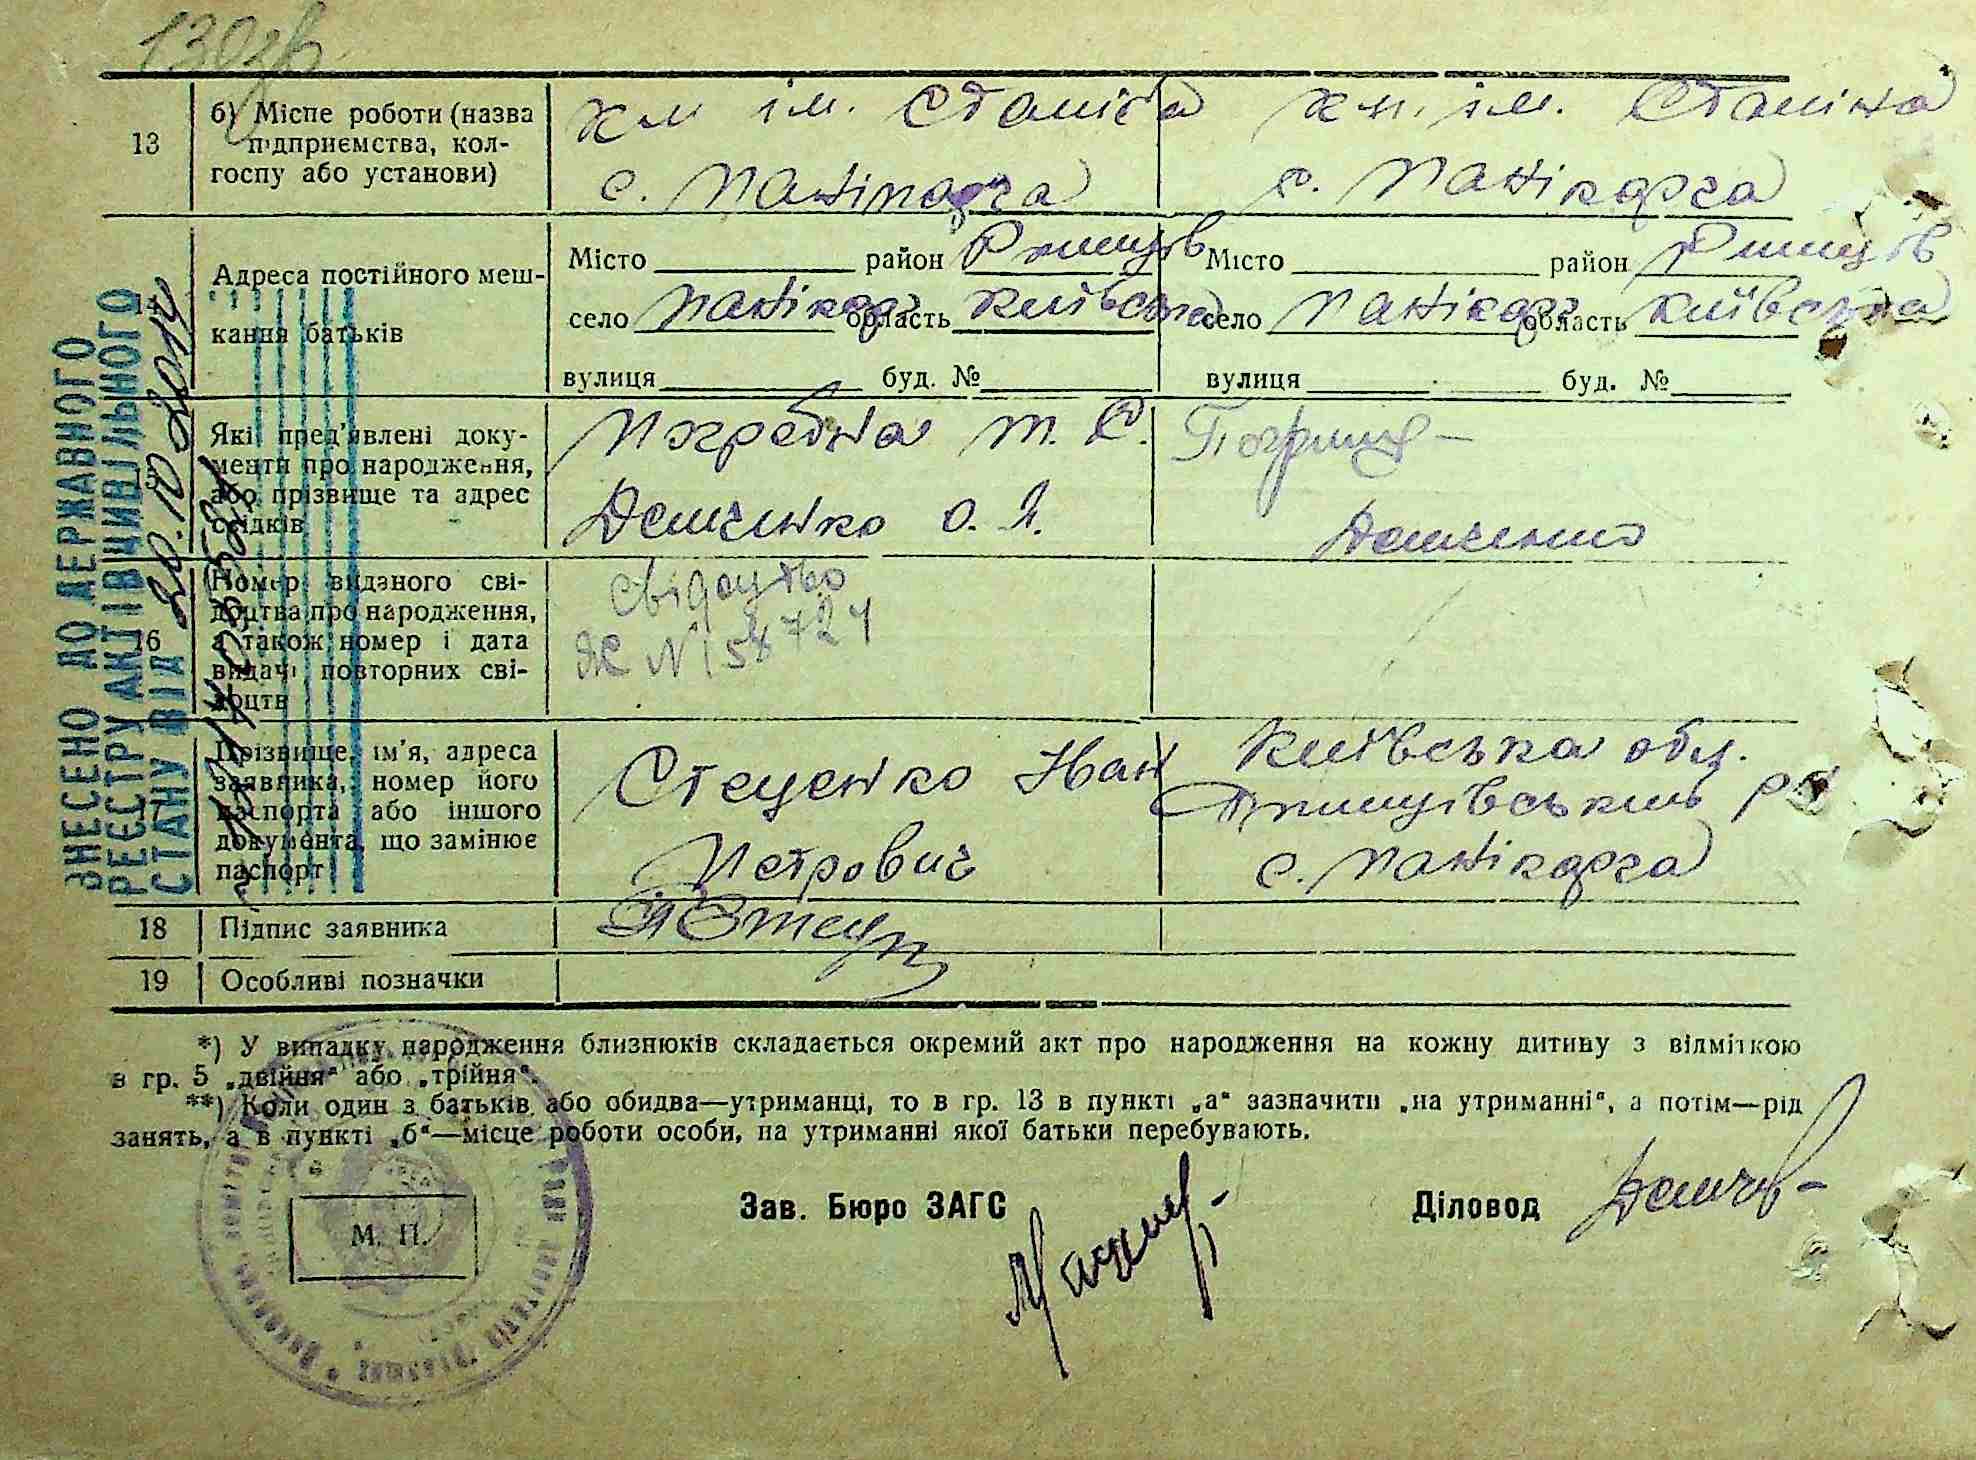 130зв
13
б) Місце роботи (назва підприємства, колгоспу або установи)
к-п ім. Сталіна
с. Панікарча
к-п. ім. Сталіна
с. Панікарча
14
Адреса постійного мешкання батьків
Місто район Ржищів
село Панікарч область Київська
вулиця буд. №
Місто район Ржищів
село Панікарч область Київська
вулиця буд. №
15
Які пред'явлені документи про народження, або прізвище та адрес свідків
Погребна М. С.
Демченко О. Я.
Демченко
16
Номер виданого свідоцтва про народження, а також номер і дата видачі повторних свідоцтв
Свідоцтво
ЯС № 158724
17
Прізвище, ім'я, адреса заявника, номер його паспорта або іншого документа, що замінює паспорт
Стеценко Іван
Петрович
Київська обл.
Ржищівський р-н
с. Панікарча
18
Підпис заявника
19
Особливі позначки
*) У випадку народження близнюків складається окремий акт про народження на кожну дитину з відміткою
в гр. 5 „двійня“ або „трійня“.
**) Коли один з батьків або обидва—утриманці, то в гр. 13 в пункті „а“ зазначити „на утриманні“, а потім—рід
занять, а в пункті „б“—місце роботи особи, на утриманні якої батьки перебувають.
М. П.
Зав. Бюро ЗАГС
Діловод
ВНЕСЕНО ДО ДЕРЖАВНОГО
РЕЄСТРУ АКТІВ ЦИВІЛЬНОГО
СТАНУ ВІД 20.10.2014